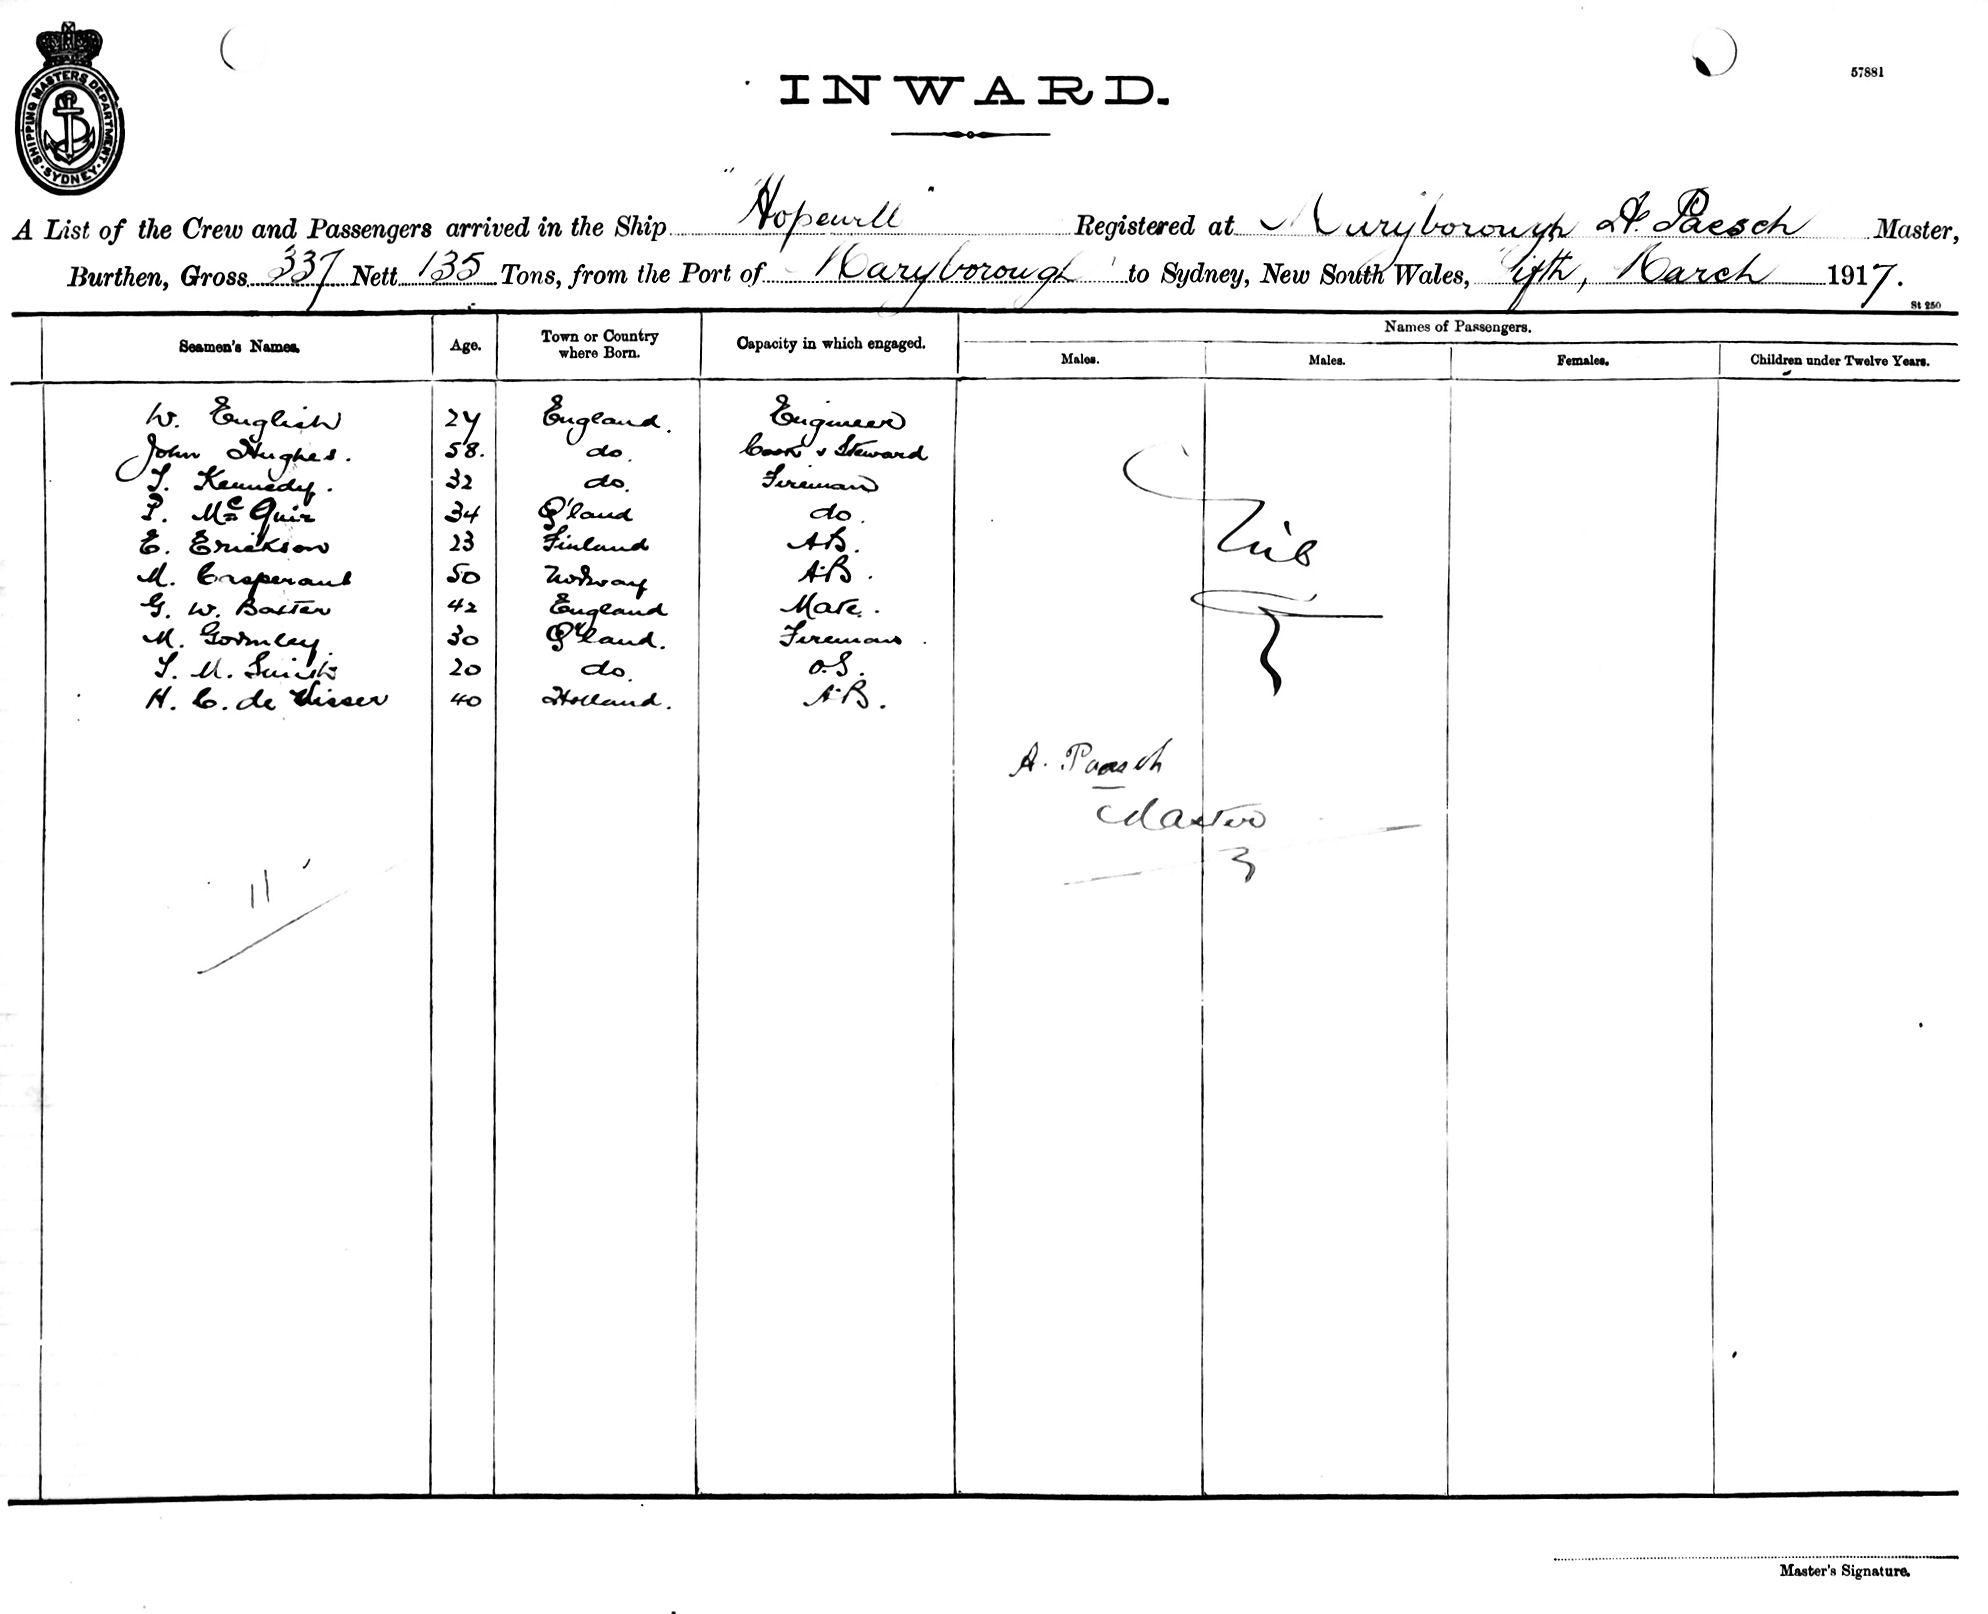 SHIPPING MASTERS DEPARTMENT. SYDNEY.
57881
INWARD.
A List of the Crew and Passengers arrived in the Ship "Hopewell" Registered at Maryborough A. Paesch Master,
Burthen, Gross 337 Nett 135 Tons, from the Port of Maryborough to Sydney, New South Wales, Fifth, March 1917.
St 250
Seamen's Names. Age. Town or Country where Born. Capacity in which engaged. Names of Passengers.
Males. Males. Females. Children under Twelve Years.
W. English 27 England. Engineer
John Hughes. 58. do. Cook & Steward
T. Kennedy. 32 do. Fireman
P. McGuir 34 Q'land do.
E. Erickson 23 Finland A.B.
M. 50 Norway A.B.
G. W. Baxter 42 England Mate.
M. Gormley. 30 Q'land. Fireman
T. M. 20 do. O.S.
H. C. de Visser 40 Holland. A.B.
Nil
A. Paesch
Master
11
Master's Signature.